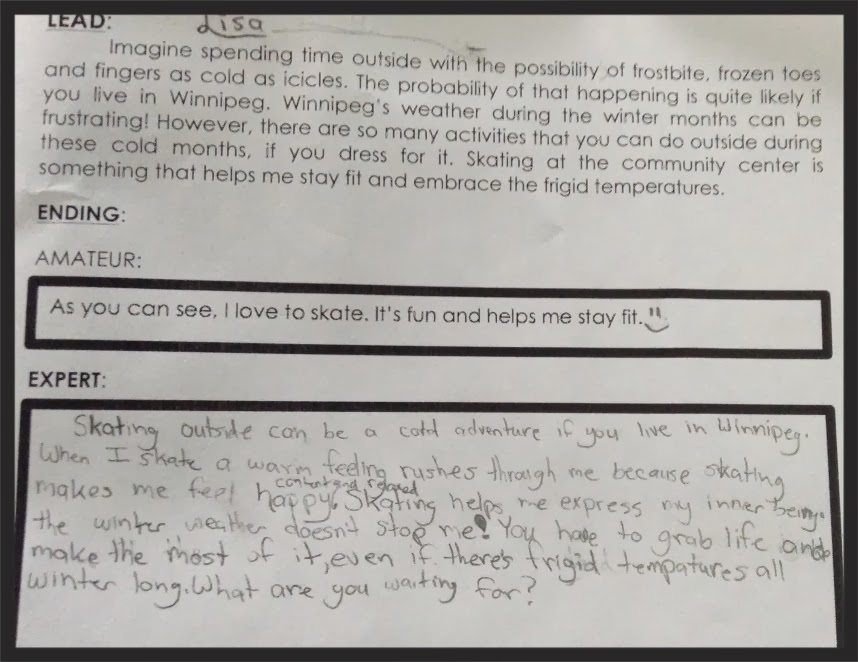 LEAD: Lisa
Imagine spending time outside with the possibility of frostbite, frozen toes
and fingers as cold as icicles. The probability of that happening is quite likely if
you live in Winnipeg. Winnipeg's weather during the winter months can be
frustrating! However, there are so many activities that you can do outside during
these cold months, if you dress for it. Skating at the community center is
something that helps me stay fit and embrace the frigid temperatures.
ENDING:
AMATEUR:
As you can see, I love to skate. It's fun and helps me stay fit.
EXPERT:
Skating outside can be a cold adventure if you live in Winnipeg.
When I skate a warm feeling rushes through me because skating
content and relaxed
makes me feel happy. Skating helps me express my inner being.
the winter weather doesn't stop me! You have to grab life and
make the most of it, even if there's frigid tempatures all
winter long. What are you waiting for?